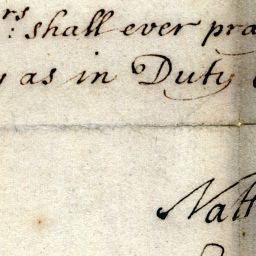 rs: shall ever pra
y as in Duty
Natt